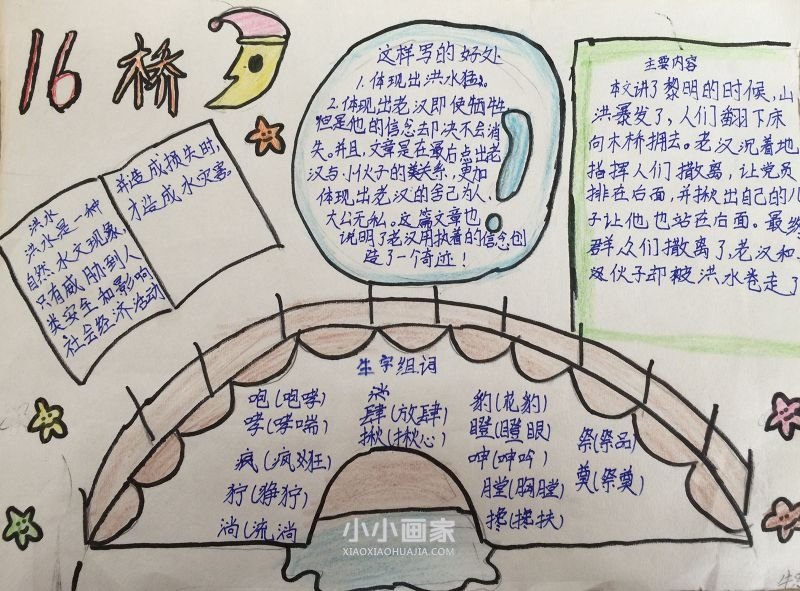 16 桥
洪水
洪水是一种
自然水文现象,
只有威胁到人
类安全和影响
社会经济活动
并造成损失时,
才造成水灾害。
这样写的好处
1. 体现出洪水猛。
2. 体现出老汉即使牺牲
但是他的信念却决不会消
失。并且,文章是在最后点出老
汉与小伙子的关系,更加
体现出老汉的舍己为人、
大公无私。这篇文章也
说明了老汉用执着的信念创
造了一个奇迹!
主要内容
本文讲了黎明的时候,山
洪暴发了,人们翻下床
向木桥拥去。老汉沉着地
指挥人们撤离,让党员
排在后面,并揪出自己的儿
子让他也站在后面。最终
群众们撤离了,老汉和
伙子却被洪水卷走了
生字组词
咆(咆哮)
哮(哮喘)
疯(疯狂)
狞(狰狞)
淌(流淌)
肆(放肆)
揪(揪心)
豹(花豹)
瞪(瞪眼)
呻(呻吟)
膛(胸膛)
搀(搀扶)
祭(祭品)
奠(祭奠)
小小画家
XIAOXIAOHUAJIA.COM